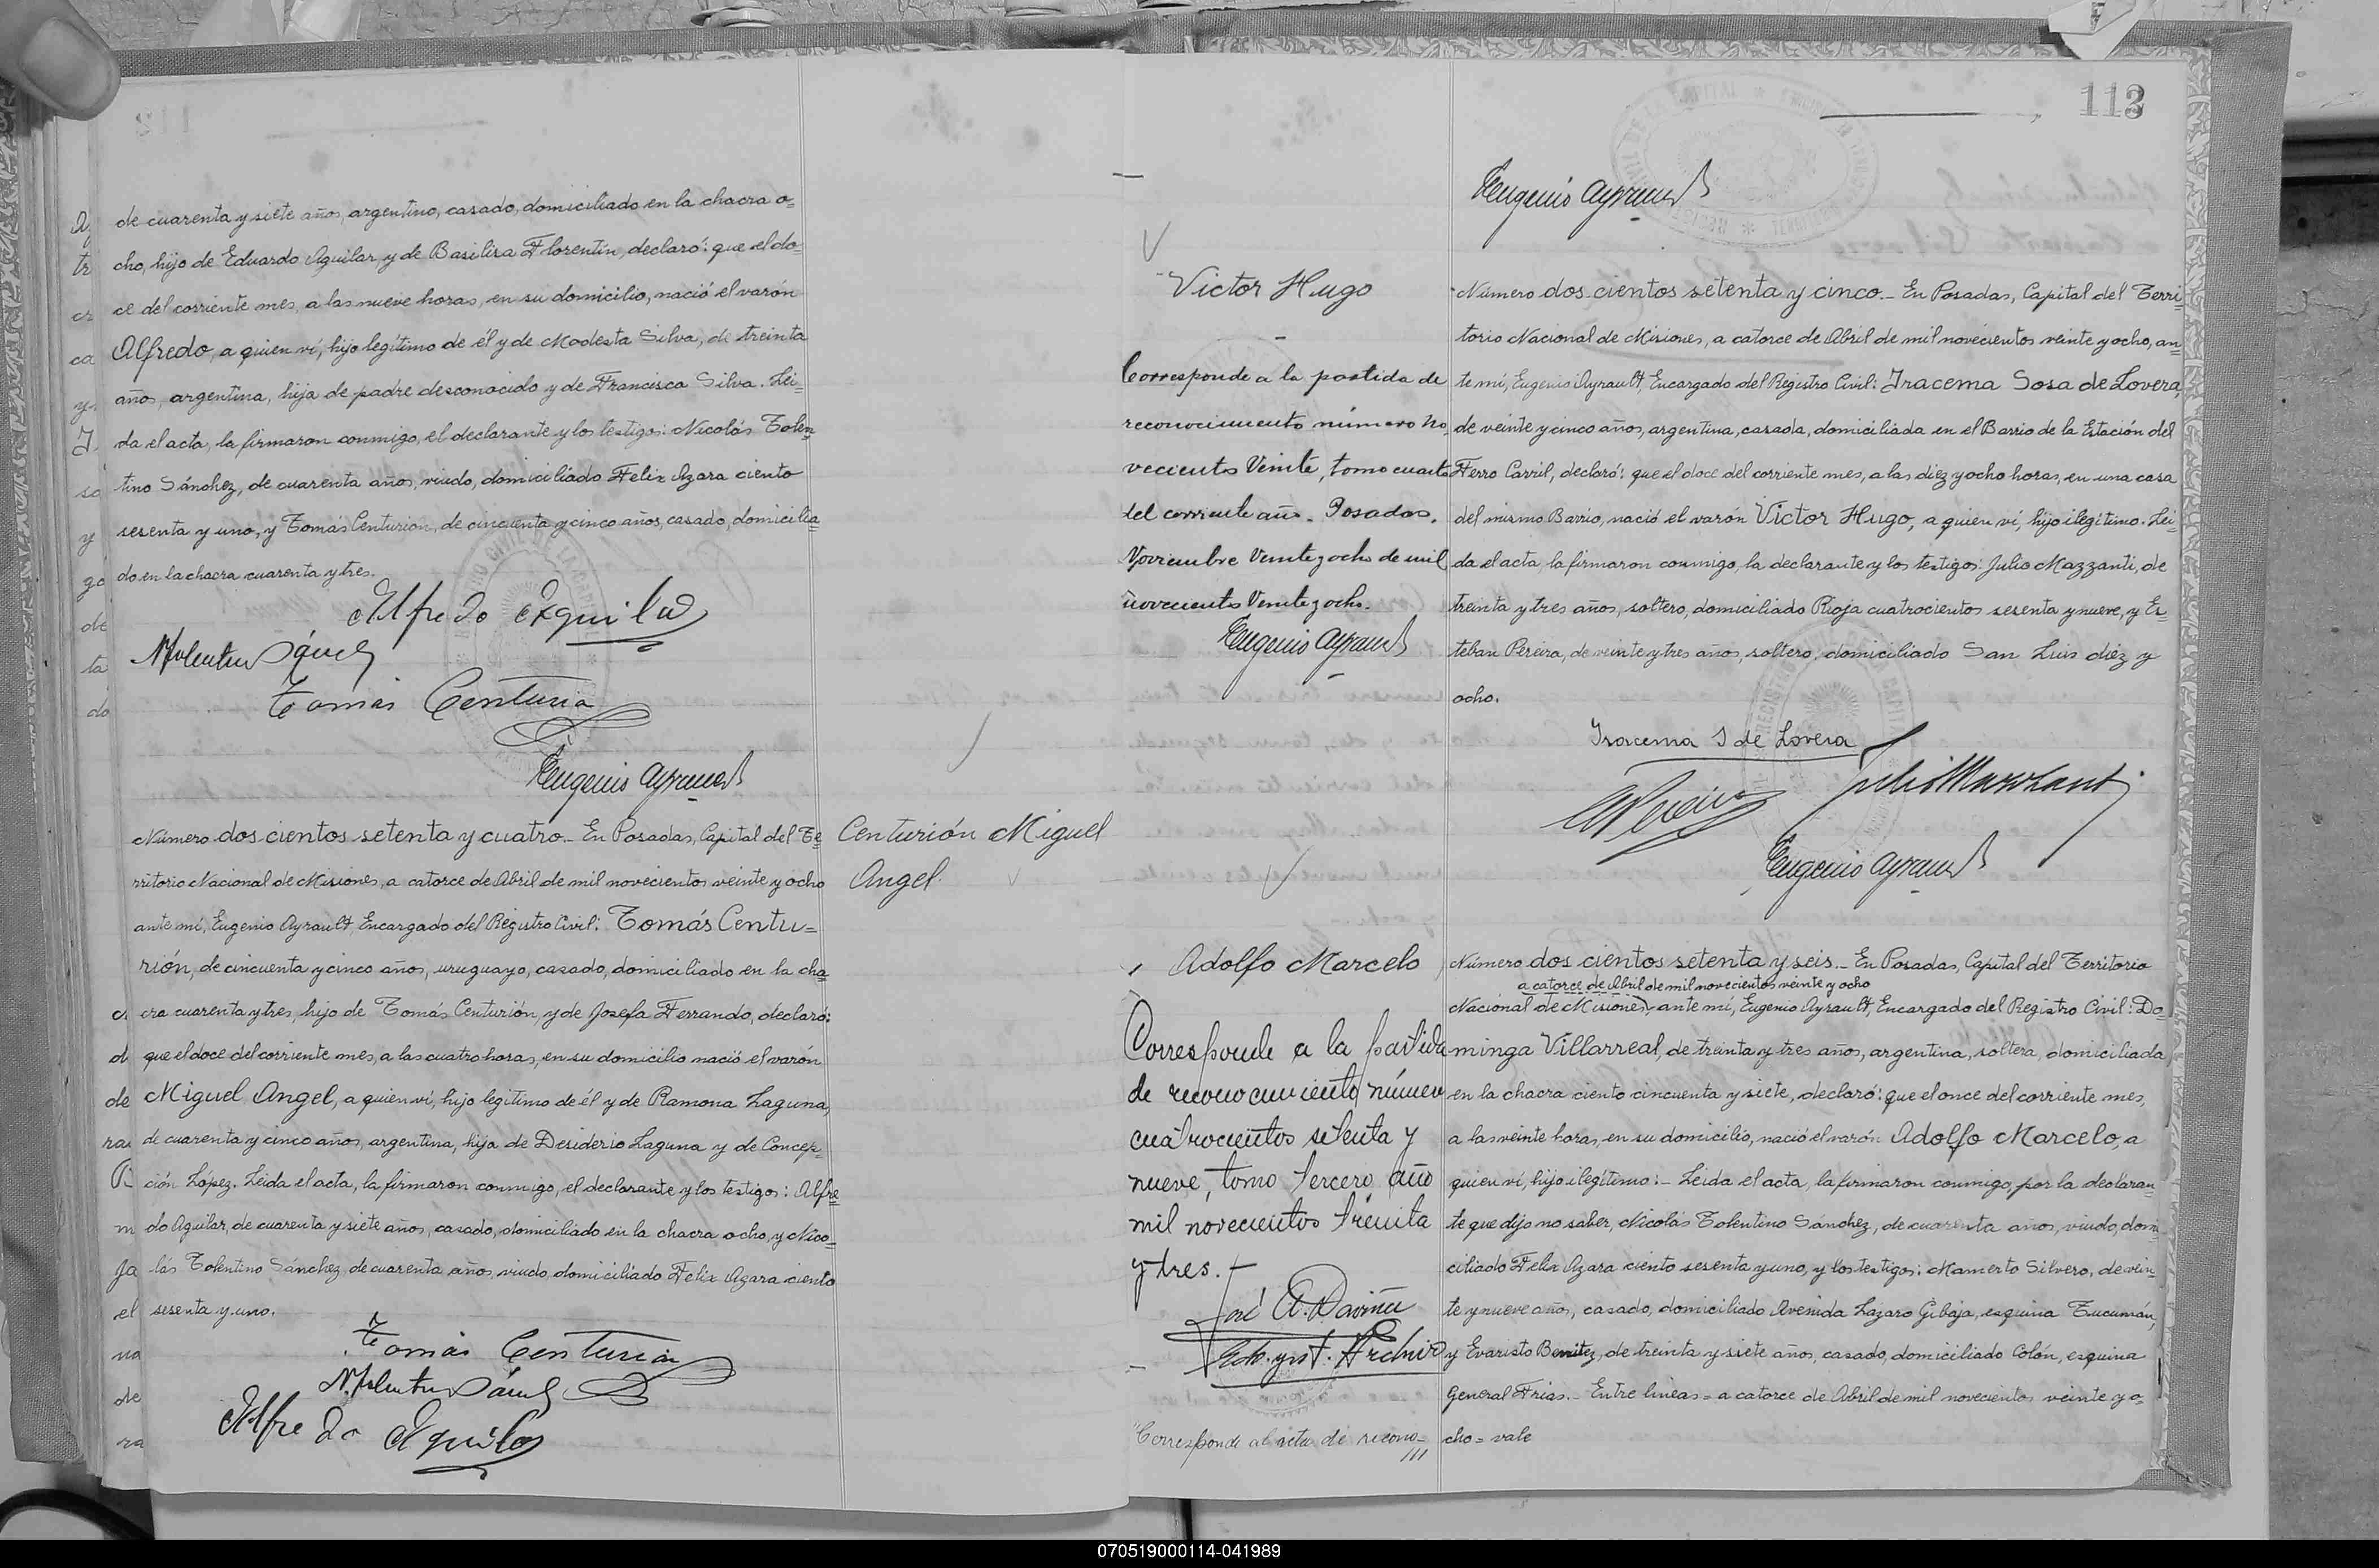 de cuarenta y siete años, argentino, casado, domiciliado en la chacra o=
cho, hijo de Eduardo Aguilar y de Basilisa Florentín, declaró: que el do=
ce del corriente mes, a las nueve horas, en su domicilio, nació el varón
Alfredo, a quien ví, hijo legítimo de él y de Modesta Silva, de treinta
años, argentina, hija de padre desconocido y de Francisca Silva. Leí=
da el acta, la firmaron conmigo, el declarante y los testigos: Nicolás Tolen=
tino Sánchez, de cuarenta años, viudo, domiciliado Felix Azara ciento
sesenta y uno, y Tomás Centurión, de cincuenta y cinco años, casado, domicilia=
do en la chacra cuarenta y tres.
Alfredo Aguilar
N. Tolentino Sánchez
Tomás Centurión
Eugenio Ayrault
Número dos cientos setenta y cuatro.- En Posadas, Capital del Te=
rritorio Nacional de Misiones, a catorce de Abril de mil novecientos veinte y ocho
ante mí, Eugenio Ayrault, Encargado del Registro Civil: Tomás Centu=
rión, de cincuenta y cinco años, uruguayo, casado, domiciliado en la cha=
cra cuarenta y tres, hijo de Tomás Centurión y de Josefa Ferrando, declaró:
que el doce del corriente mes, a las cuatro horas, en su domicilio nació el varón
Miguel Angel, a quien ví, hijo legítimo de él y de Ramona Laguna,
de cuarenta y cinco años, argentina, hija de Desiderio Laguna y de Concep=
ción López. Leida el acta, la firmaron conmigo, el declarante y los testigos: Alfre=
do Aguilar, de cuarenta y siete años, casado, domiciliado en la chacra ocho, y Nico=
lás Tolentino Sánchez, de cuarenta años, viudo, domiciliado Felix Azara ciento
sesenta y uno.
Tomás Centurión
N. Tolentino Sánchez
Alfredo Aguilar
Centurión Miguel
Angel.
113
Eugenio Ayrault
Victor Hugo
Corresponde a la partida de
reconocimiento número no=
vecientos Veinte, tomo cuarto
del corriente año. Posadas,
Noviembre Veinte y ocho de mil
novecientos Veinte y ocho.
Eugenio Ayrault
Número dos cientos setenta y cinco.- En Posadas, Capital del Terri
torio Nacional de Misiones, a catorce de Abril de mil novecientos veinte y ocho, an=
te mí, Eugenio Ayrault, Encargado del Registro Civil: Iracema Sosa de Lovera,
de veinte y cinco años, argentina, casada, domiciliada en el Barrio de la Estación del
Ferro Carril, declaró: que el doce del corriente mes, a las diez y ocho horas, en una casa
del mismo Barrio, nació el varón Victor Hugo, a quien ví, hijo ilegítimo. Leí=
da el acta, la firmaron conmigo, la declarante y los testigos: Julio Mazzanti, de
treinta y tres años, soltero, domiciliado Rioja cuatrocientos sesenta y nueve, y Es=
teban Pereira, de veinte y tres años, soltero, domiciliado San Luis diéz y
ocho.
Iracema S de Lovera
E Pereira
Julio Mazzanti
Eugenio Ayrault
Adolfo Marcelo
Corresponde a la partida
de reconocimiento número
cuatrocientos setenta y
nueve, tomo tercero año
mil novecientos treinta
y tres.-
José A.
Archivo
"Corresponde al acta de recono=
Número dos cientos setenta y seis.- En Posadas, Capital del Territorio
a catorce de Abril de mil novecientos veinte y ocho
Nacional de Misiones, ante mí, Eugenio Ayrault, Encargado del Registro Civil: Do=
minga Villarreal, de treinta y tres años, argentina, soltera, domiciliada
en la chacra ciento cincuenta y siete, declaró: que el once del corriente mes,
a las veinte horas, en su domicilio, nació el varón Adolfo Marcelo, a
quien ví, hijo ilegítimo:- Leida el acta, la firmaron conmigo, por la declaran=
te que dijo no saber, Nicolás Tolentino Sánchez, de cuarenta años, viudo, domi=
ciliado Felix Azara ciento sesenta y uno, y los testigos: Mamerto Silvero, de vein=
te y nueve años, casado, domiciliado Avenida Lazaro Gibaja, esquina Tucumán,
y Evaristo Benitez, de treinta y siete años, casado, domiciliado Colón, esquina
General Frias.- Entre lineas = a catorce de Abril de mil novecientos veinte y o=
cho = vale
070519000114-041989